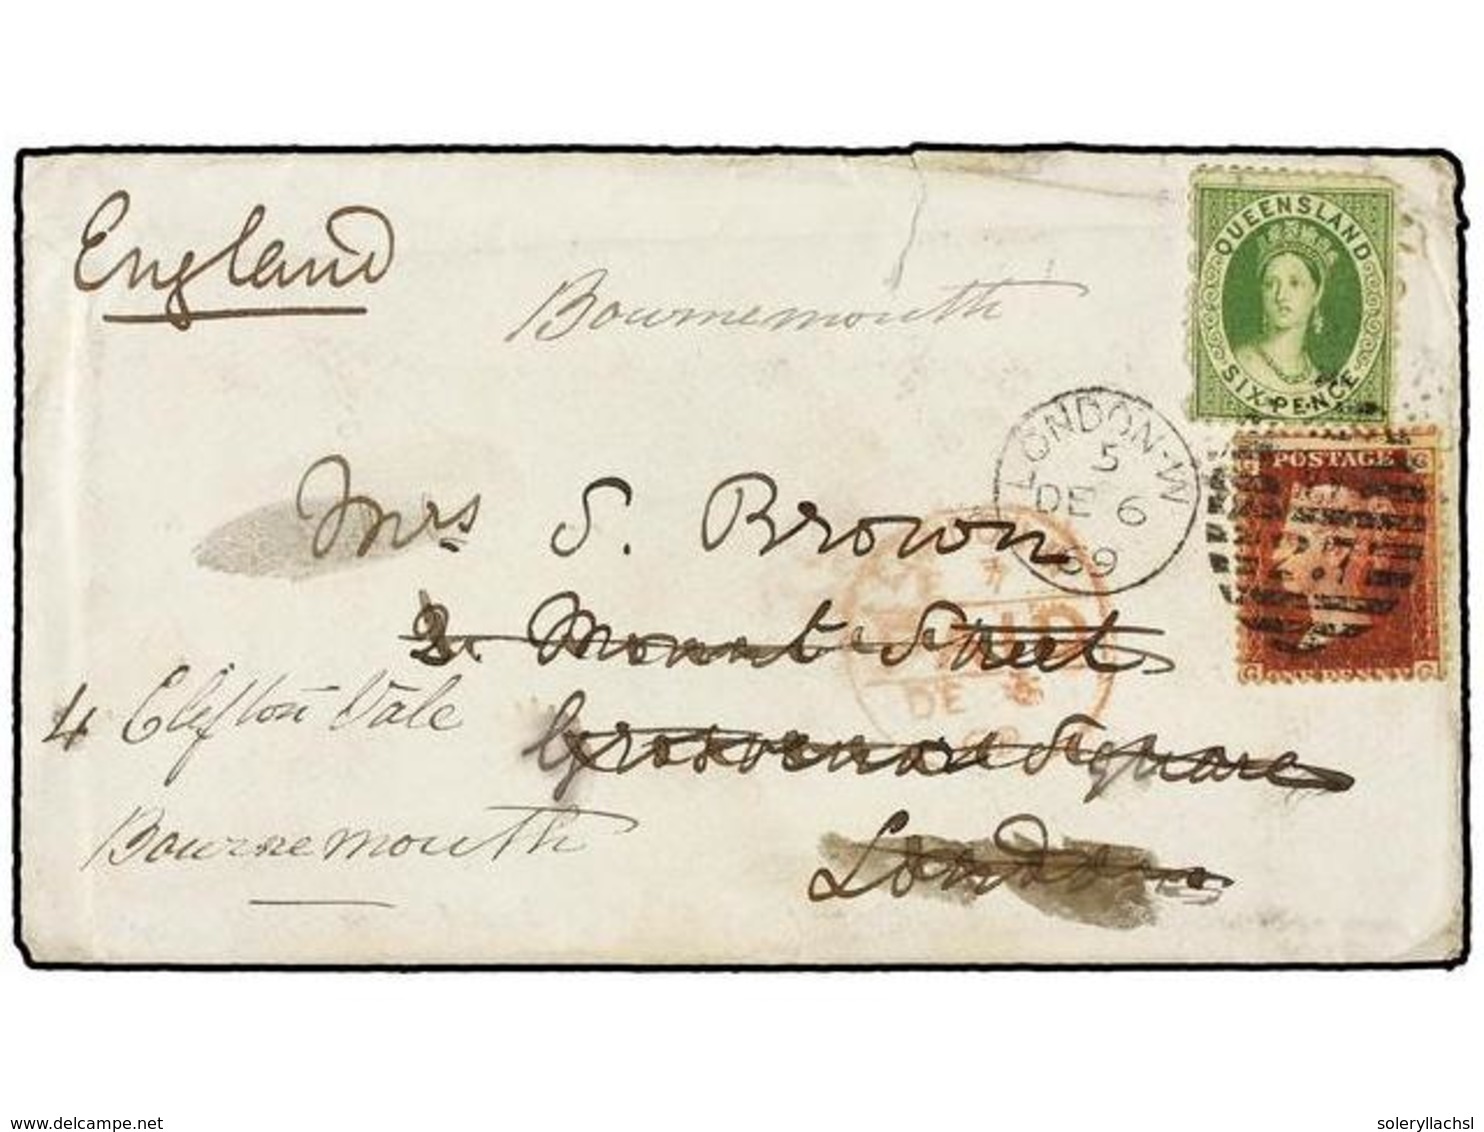 England
Bournemouth
QUEENSLAND
SIX PENCE
LONDON-W
5
DE 6
69
POSTAGE
G
27
G
ONE PENNY
G
Mrs S. Brown
2. Mount Street
Grosvenor Square
London
PAID
DE 6
4 Clifton Vale
Bournemouth
delcampe.net
soleryllachsl